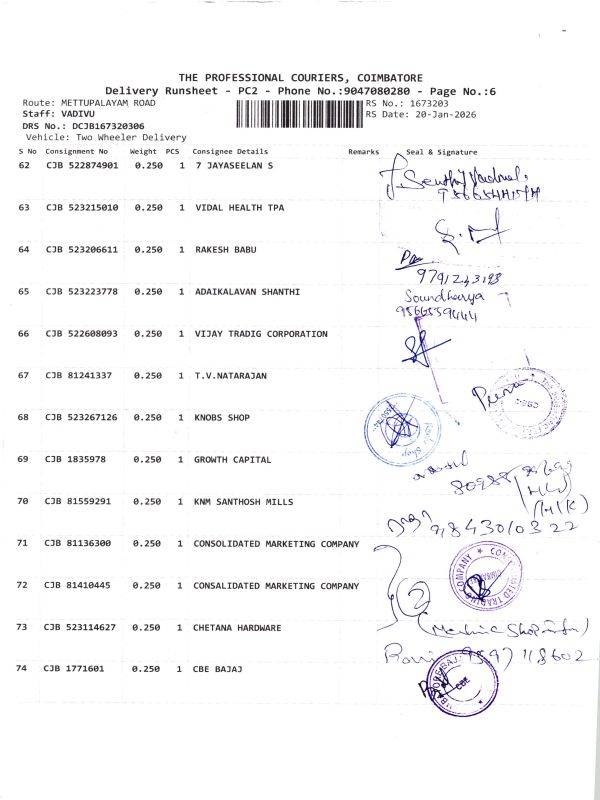 THE PROFESSIONAL COURIERS, COIMBATORE
Delivery Runsheet - PC2 - Phone No.:9047080280 - Page No.:6
Route: METTUPALAYAM ROAD
RS No.: 1673203
Staff: VADIVU
RS Date: 20-Jan-2026
DRS No.: DCJB167320306
Vehicle: Two Wheeler Delivery
S No Consignment No Weight PCS Consignee Details Remarks Seal & Signature
62 CJB 522874901 0.250 1 7 JAYASEELAN S
63 CJB 523215010 0.250 1 VIDAL HEALTH TPA
64 CJB 523206611 0.250 1 RAKESH BABU
65 CJB 523223778 0.250 1 ADAIKALAVAN SHANTHI
Soundharya
9566559444
66 CJB 522608093 0.250 1 VIJAY TRADIG CORPORATION
67 CJB 81241337 0.250 1 T.V.NATARAJAN
68 CJB 523267126 0.250 1 KNOBS SHOP
69 CJB 1835978 0.250 1 GROWTH CAPITAL
70 CJB 81559291 0.250 1 KNM SANTHOSH MILLS
9843010322
71 CJB 81136300 0.250 1 CONSOLIDATED MARKETING COMPANY
72 CJB 81410445 0.250 1 CONSALIDATED MARKETING COMPANY
2
73 CJB 523114627 0.250 1 CHETANA HARDWARE
9597118602
74 CJB 1771601 0.250 1 CBE BAJAJ
CBE